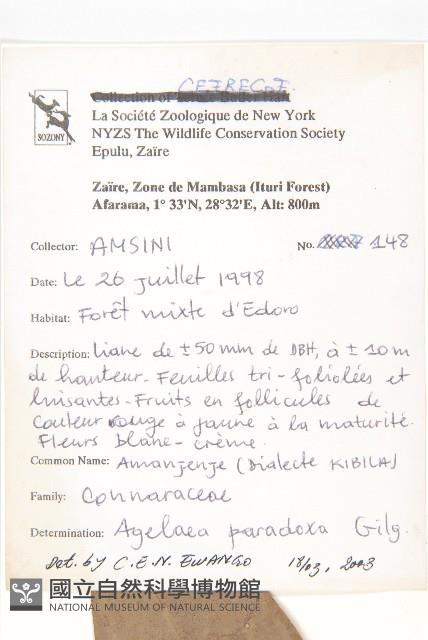 CEFRECOF
Collection of
SOZONY
La Société Zoologique de New York
NYZS The Wildlife Conservation Society
Epulu, Zaïre
Zaïre, Zone de Mambasa (Ituri Forest)
Afarama, 1° 33'N, 28°32'E, Alt: 800m
Collector: AMSINI No. 148
Date: Le 26 juillet 1998
Habitat: Forêt mixte d'Edoro
Description: Liane de ±50 mm de DBH, à ± 10 m
de hauteur. Feuilles tri-foliolées et
luisantes. Fruits en follicules de
couleur rouge à jaune à la maturité.
Fleurs blanc-crème.
Common Name: Amanjenje (Dialecte KIBILA)
Family: Connaraceae
Determination: Agelaea paradoxa Gilg.
Det. by C.E.N. EWANGO 18/03, 2003
國立自然科學博物館
NATIONAL MUSEUM OF NATURAL SCIENCE